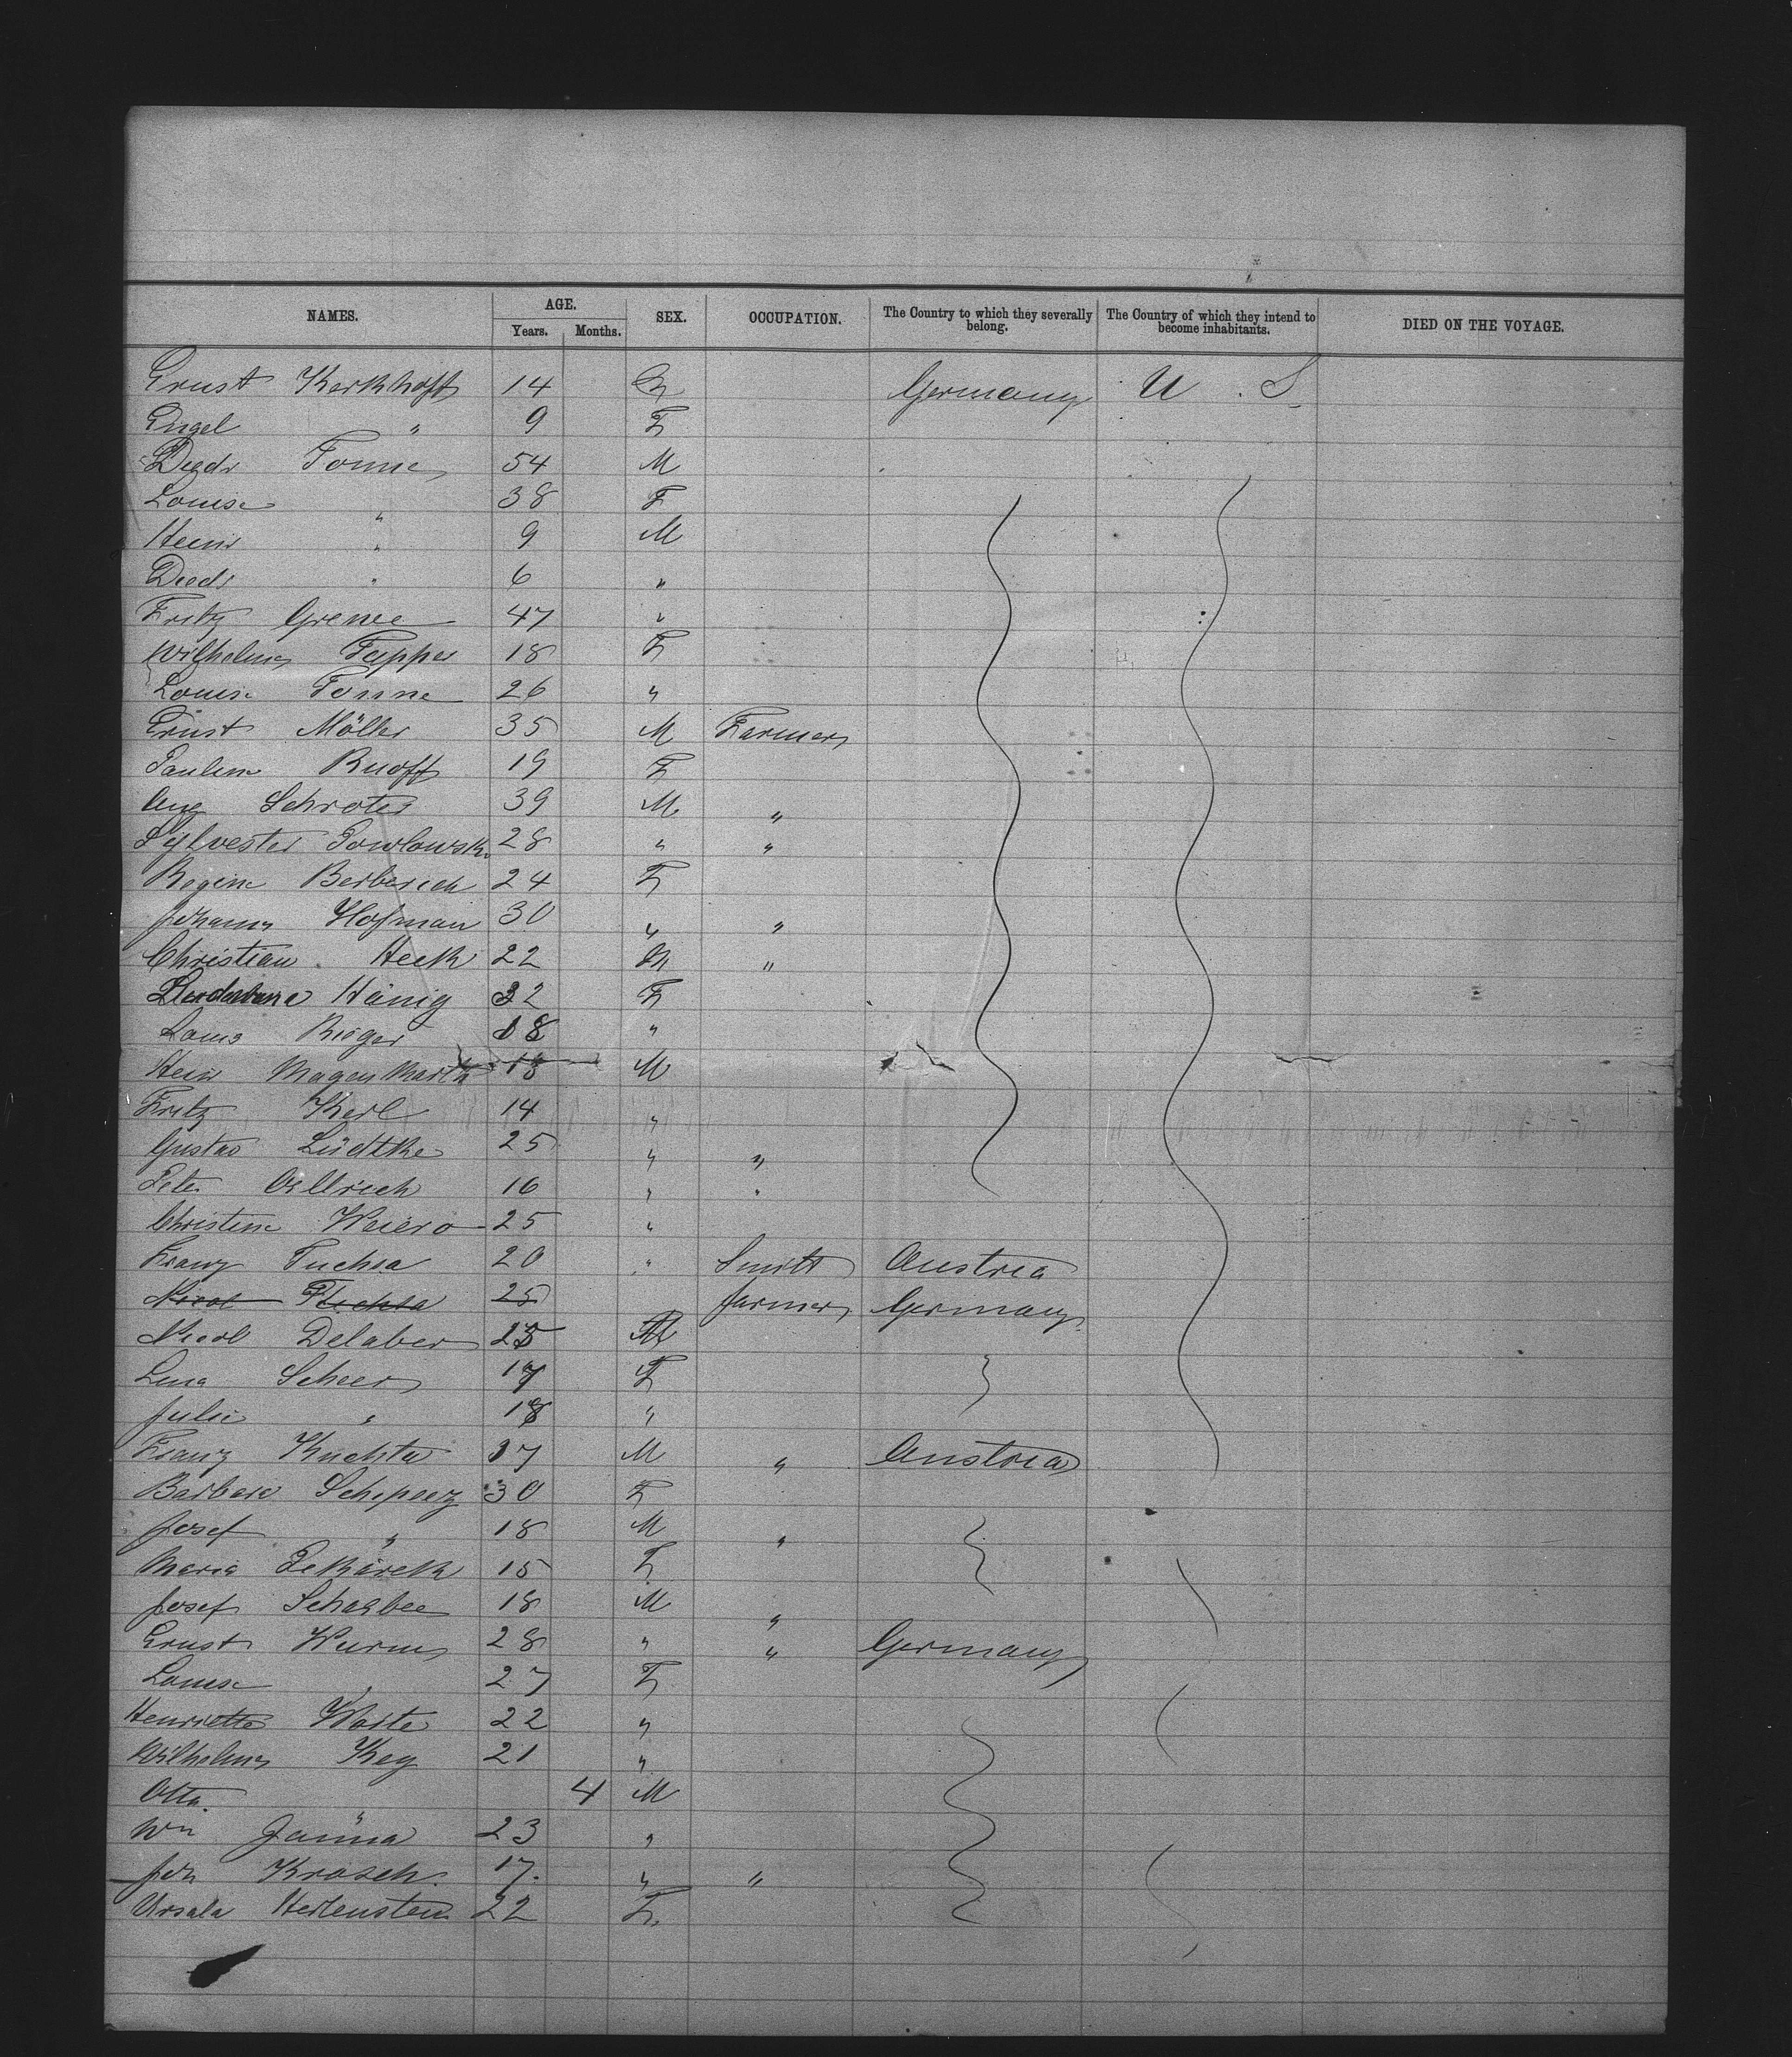 NAMES. AGE. Years. Months. SEX. OCCUPATION. The Country to which they severally belong. The Country of which they intend to become inhabitants. DIED ON THE VOYAGE.
Ernst Kerkhoff 14 M Germany U. S.
Engel " 9 F
Diedr Tonne 54 M
Louise " 38 F
Heinr " 9 M
Diedr " 6 "
Fritz Grenee 47 "
Wilhelmn Tapper 18 F
Louise Tonne 26 "
Ernst Möller 35 M Farmer
Pauline Ruoff 19 F
Aug Schroter 39 M "
Sylvester Powlowsk 28 " "
Regine Berberich 24 F
Johann Hofman 30 " "
Christian Heck 22 M "
Hänig 32 F
Rieger 18 "
Heinr 18 M
Fritz Kerl 14 "
Gustav Lüdtke 25 " "
Peter Oellrich 16 " "
Christine Weiero 25 "
Franz Fuchsa 20 " Smith Austria
Nicol Fuchsa 25 farmer Germany
Nicol Delaber 25 M
Lena Scheer 17 F
Julie " 18 "
Franz Kuchta 17 M " Austria
Barbara Scheperz 30 F
Josef " 18 M "
Maria Pekárek 15 F
Josef Scharbee 18 M "
Ernst Wurm 28 " " Germany
Louise " 27 F
Henriette Warte 22 "
Wilhelmn Key 21 "
Otto " 4 M
Wm Janna 23 "
Joh Krosch. 17. " "
Ursala Hertenstein 22 F.